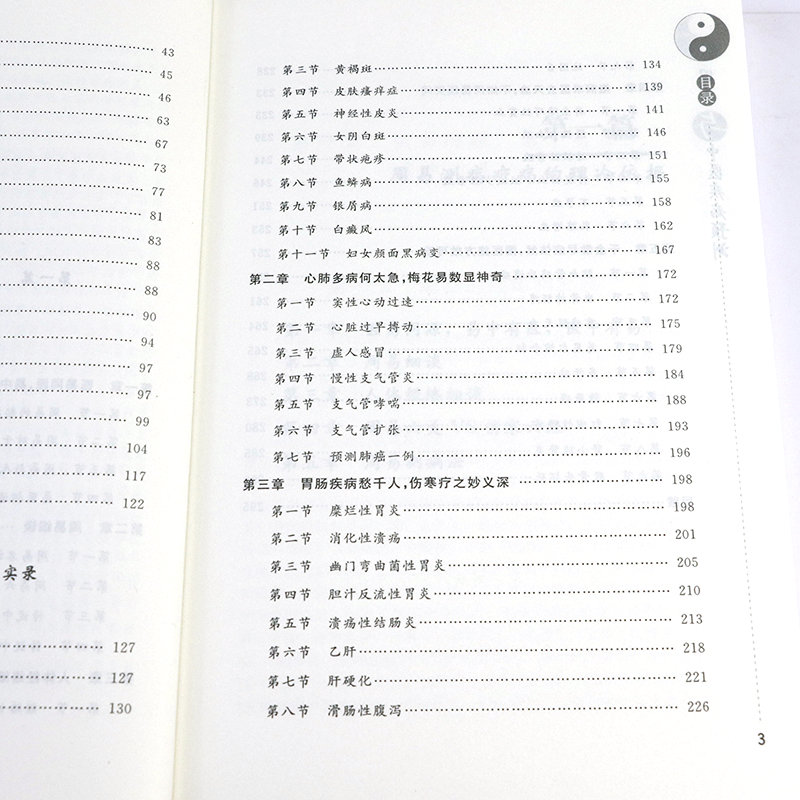 43
45
46
63
67
73
77
81
83
88
88
90
94
97
97
99
104
117
122
实录
127
127
130
目录
第三节 黄褐斑 134
第四节 皮肤瘙痒症 139
第五节 神经性皮炎 141
第六节 女阴白斑 146
第七节 带状疱疹 151
第八节 鱼鳞病 155
第九节 银屑病 158
第十节 白癜风 162
第十一节 妇女颜面黑病变 167
第二章 心肺多病何太急,梅花易数显神奇 172
第一节 窦性心动过速 172
第二节 心脏过早搏动 175
第三节 虚人感冒 179
第四节 慢性支气管炎 184
第五节 支气管哮喘 188
第六节 支气管扩张 193
第七节 预测肺癌一例 196
第三章 胃肠疾病愁千人,伤寒疗之妙义深 198
第一节 糜烂性胃炎 198
第二节 消化性溃疡 201
第三节 幽门弯曲菌性胃炎 205
第四节 胆汁反流性胃炎 210
第五节 溃疡性结肠炎 213
第六节 乙肝 218
第七节 肝硬化 221
第八节 滑肠性腹泻 226
3